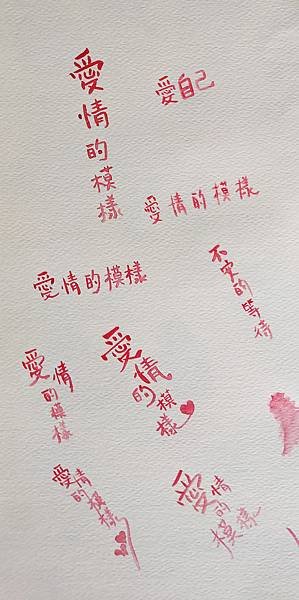 愛情的模樣
愛自己
愛情的模樣
愛情的模樣
不安的等待
愛情的模樣
愛情的模樣
愛情的模樣
愛情的模樣